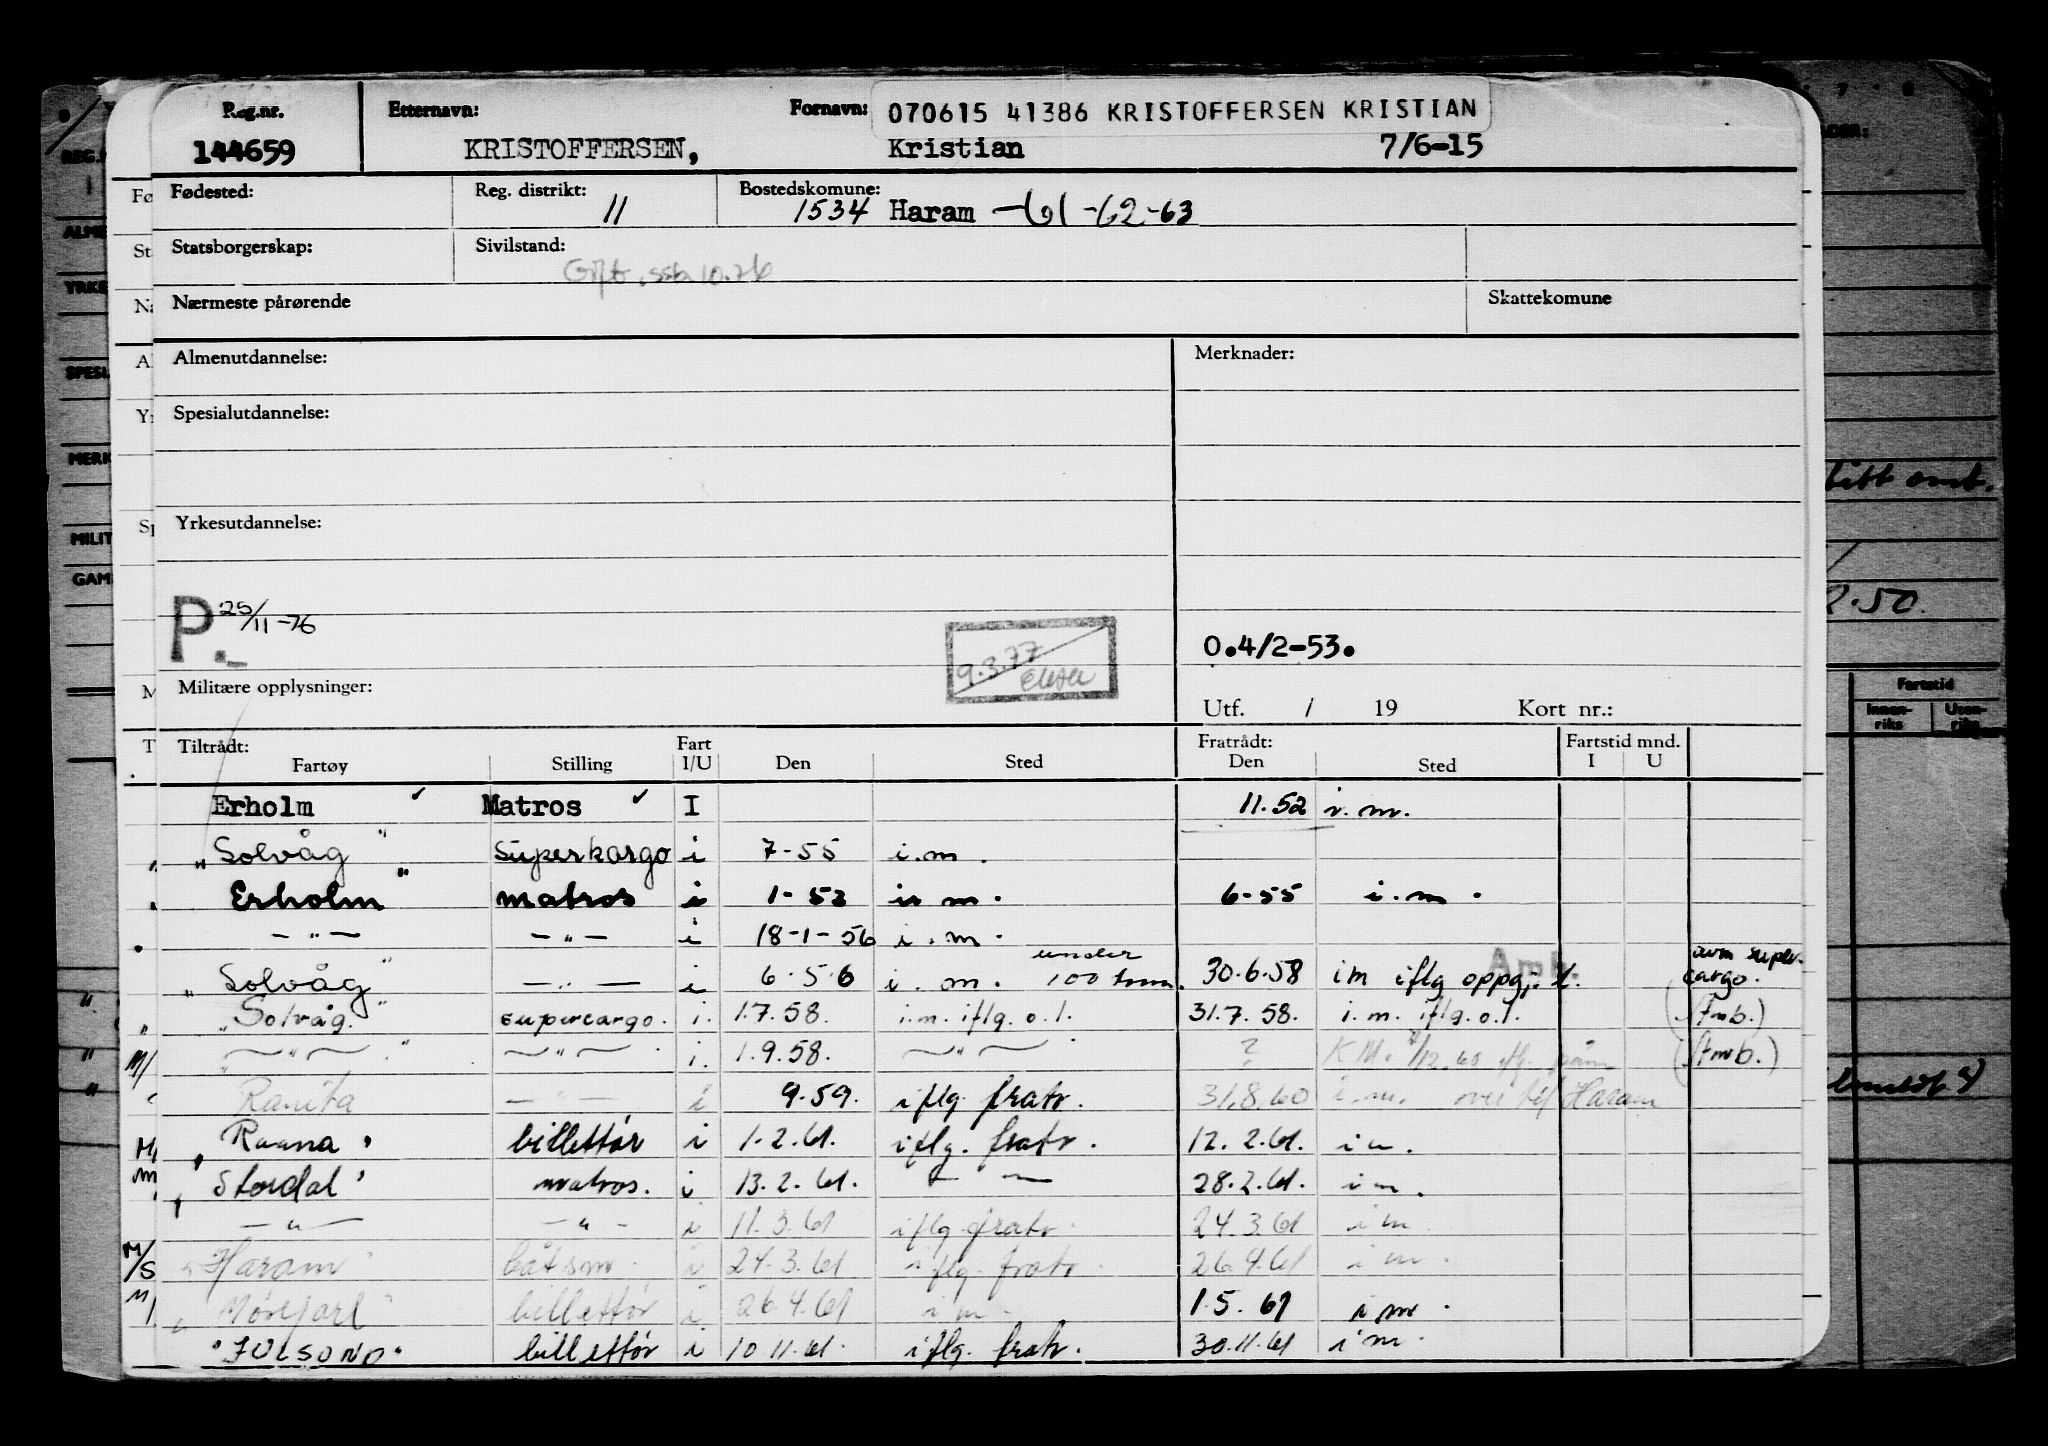 Reg.nr. Etternavn: Fornavn: 070615 41386 KRISTOFFERSEN KRISTIAN
144659 KRISTOFFERSEN, Kristian 7/6-15
Fødested: Reg. distrikt: 11 Bostedskomune: 1534 Haram -61-62-63
Statsborgerskap: Sivilstand: Gift. ssb 10.76
Nærmeste pårørende Skattekomune
Almenutdannelse: Merknader:
Spesialutdannelse:
Yrkesutdannelse:
P. 25/11-76
9.3.77
O.4/2-53.
Militære opplysninger:
Utf. / 19 Kort nr.:
Tiltrådt: Fart Fratrådt: Fartstid mnd.
Fartøy Stilling I/U Den Sted Den Sted I U
Erholm ✓ Matros ✓ I 11.52 i.m.
"Solvåg" Superkargo i 7-55 i.m.
Erholm" matros i 1-53 i m. 6-55 i.m.
-"- -"- i 18-1-56 i.m.
"Solvåg" -"- i 6-56 i.m. under 100 tonn. 30.6.58 im iflg oppgj. Amb. avm super-cargo.
"Solvåg." supercargo. i. 1.7.58. i.m. iflg. o.l. 31.7.58. i.m. iflg. o.l. (Amb.)
-"- -"- i. 1.9.58. -"- ? (Amb.)
Ranita -"- i 9.59. iflg. fratr. 31.8.60 i.m. Haram
M/ "Rauna" billettør i 1.2.61. iflg. fratr. 12.2.61. i m.
m/ "Stordal" matros. i 13.2.61. - - 28.2.61. i m.
-"- -"- i 11.3.61 iflg. fratr. 24.3.61 i m.
M/S "Haram" båtsm. i 24.3.61 iflg. fratr. 26.4.61 i m.
M/ "Mørejarl" billettør i. 26.4.61 i m. 1.5.61 i m.
"JULSUND" billettør i 10.11.61. iflg. fratr. 30.11.61 i m.
2.50.
Fartstid
Innen-riks Uten-riks